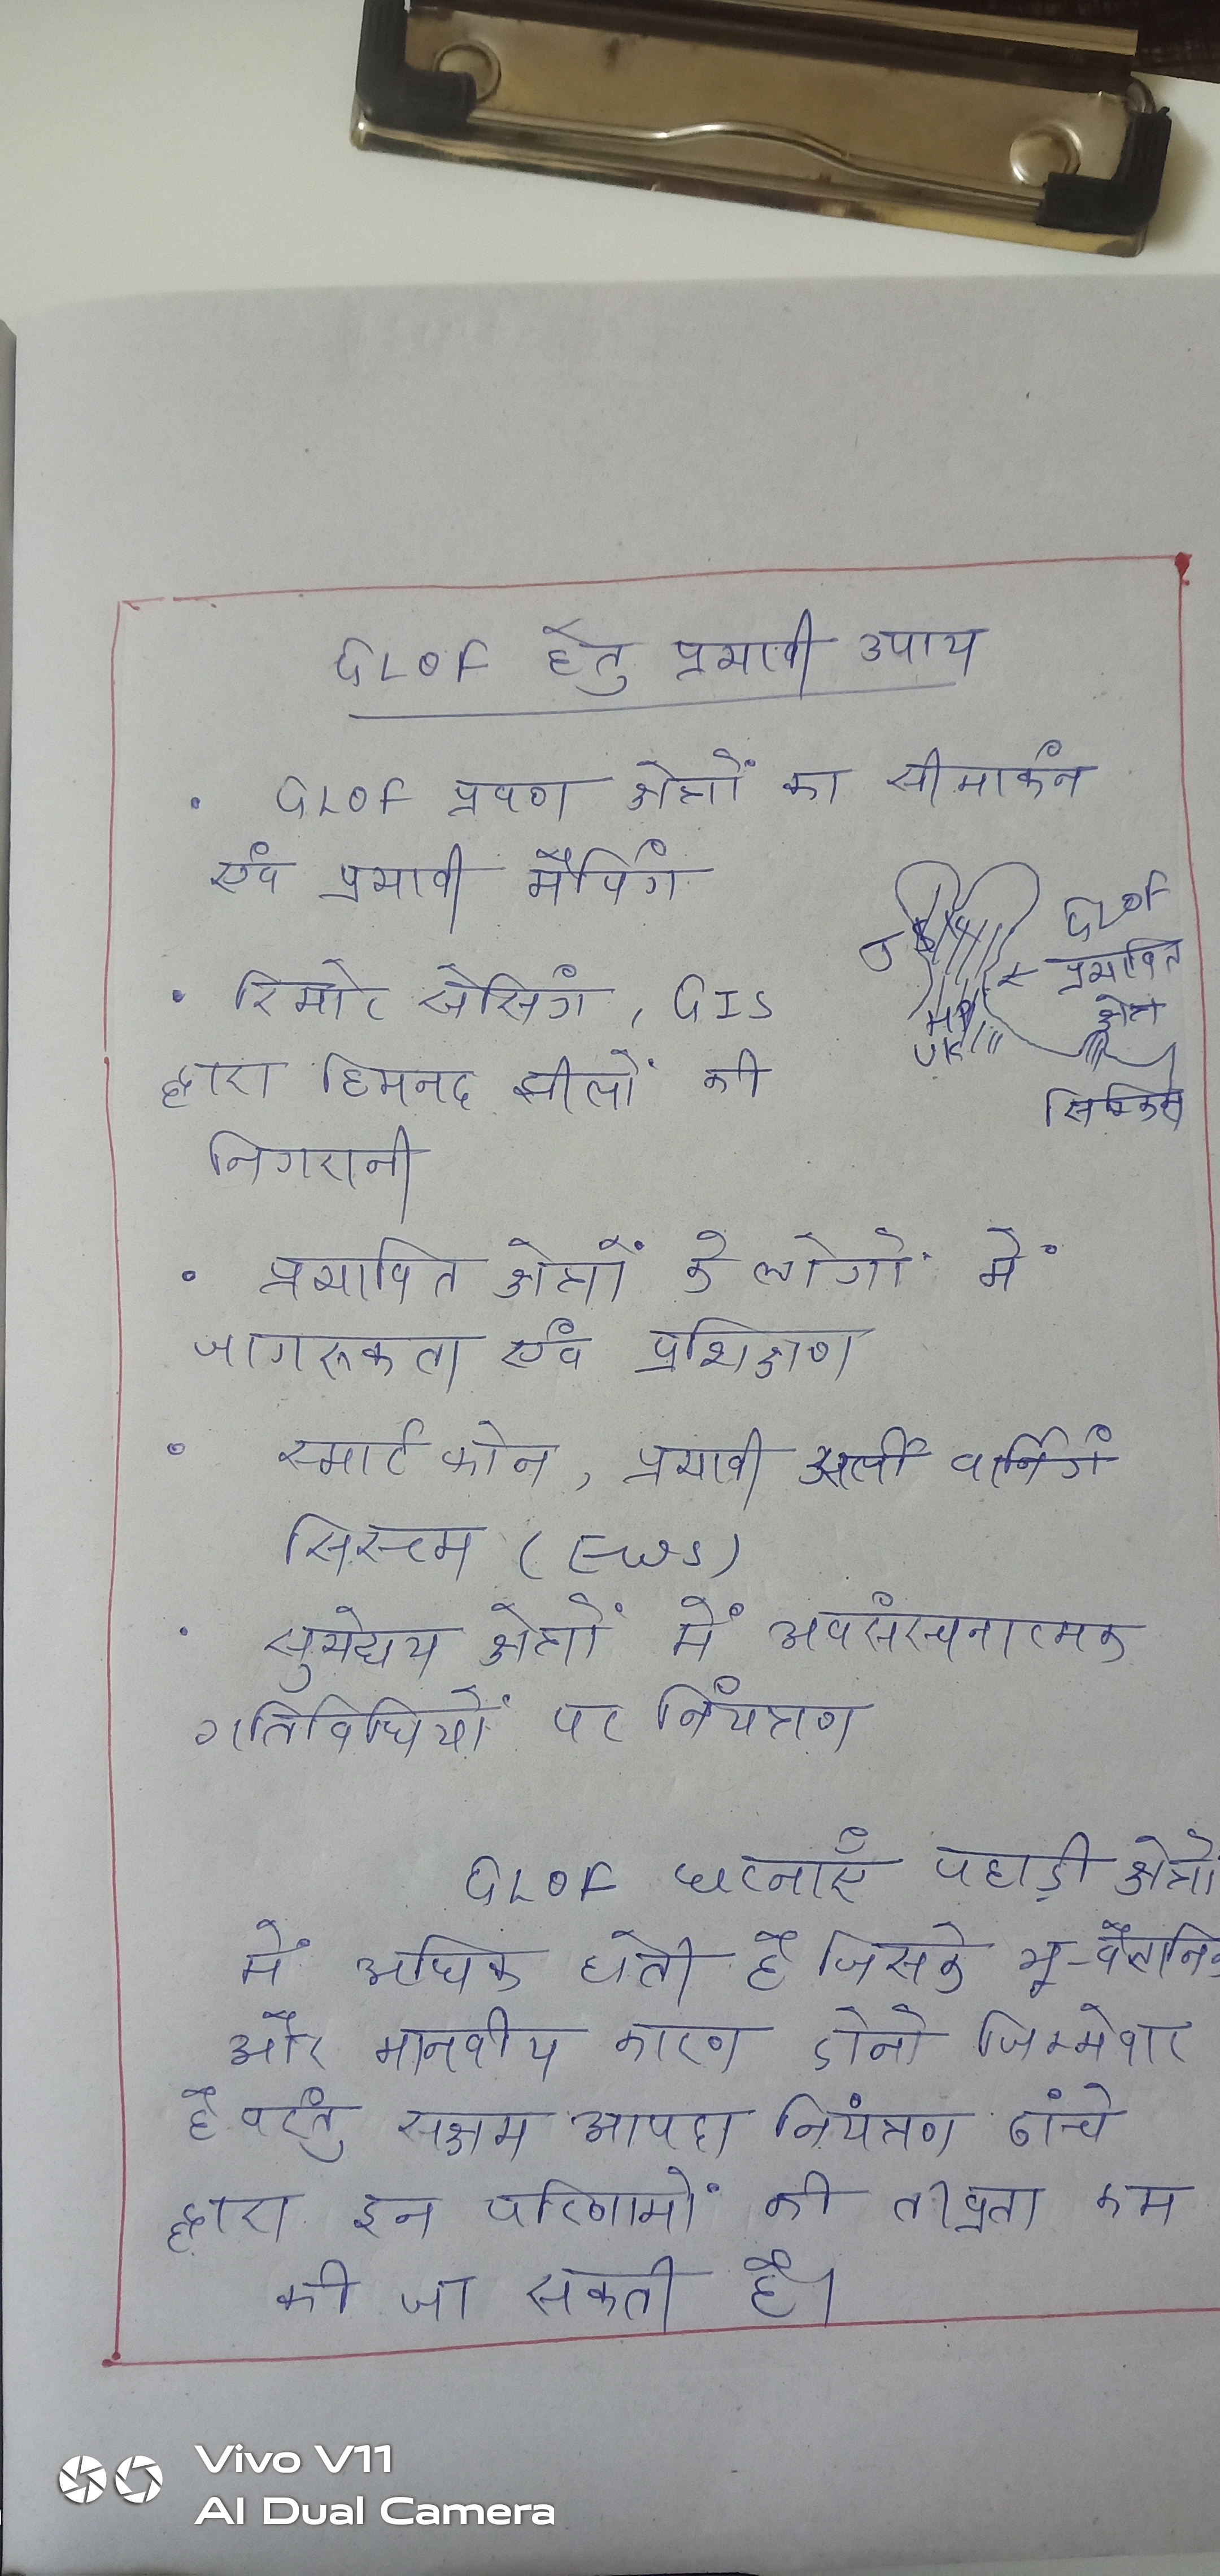 GLOF हेतु प्रभावी उपाय
• GLOF प्रवण क्षेत्रों का सीमाकंन
एंव प्रभावी मैपिंग
GLOF
प्रभावित
क्षेत्र
सिक्किम
• रिमोट सेंसिंग, GIS
द्वारा हिमनद झीलों की
निगरानी
• प्रभावित क्षेत्रों के लोगों में
जागरूकता एंव प्रशिक्षण
• स्मार्ट फोन, प्रभावी अर्ली वार्निंग
सिस्टम (EWS)
• सुभेद्यय क्षेत्रों में अवसंरचनात्मक
गतिविधियों पर नियंत्रण
GLOF घटनाएँ पहाड़ी क्षेत्रों
में अधिक होती है जिसके भू-वैज्ञानिक
और मानवीय कारण दोनो जिम्मेवार
है परंतु सक्षम आपदा नियंत्रण ढांचे
द्वारा इन परिणामों की तीव्रता कम
की जा सकती है।
Vivo V11
AI Dual Camera